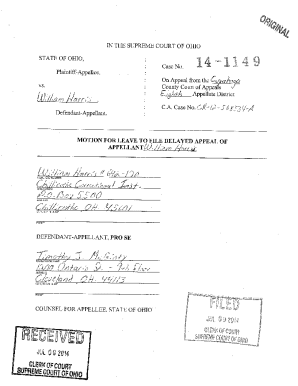 ORIGINAL
IN THE SUPREME COURT OF OHIO
STATE OF OHIO,
Plaintiff-Appellee,
vs.
William Harris
Defendant-Appellant.
Case No. 14-1149
On Appeal from the Cuyahoga
County Court of Appeals
Eighth Appellate District
C.A. Case No.
MOTION FOR LEAVE TO FILE DELAYED APPEAL OF
APPELLANT William Harris
William Harris #
Chillicothe Correctional Inst.
P.O. Box 5500
Chillicothe, OH. 45601
DEFENDANT-APPELLANT, PRO SE
Timothy J. McGinty
Ontario St.
Cleveland, OH 44113
COUNSEL FOR APPELLEE, STATE OF OHIO
RECEIVED
JUL 09 2014
CLERK OF COURT
SUPREME COURT OF OHIO
FILED
JUL 09 2014
CLERK OF COURT
SUPREME COURT OF OHIO